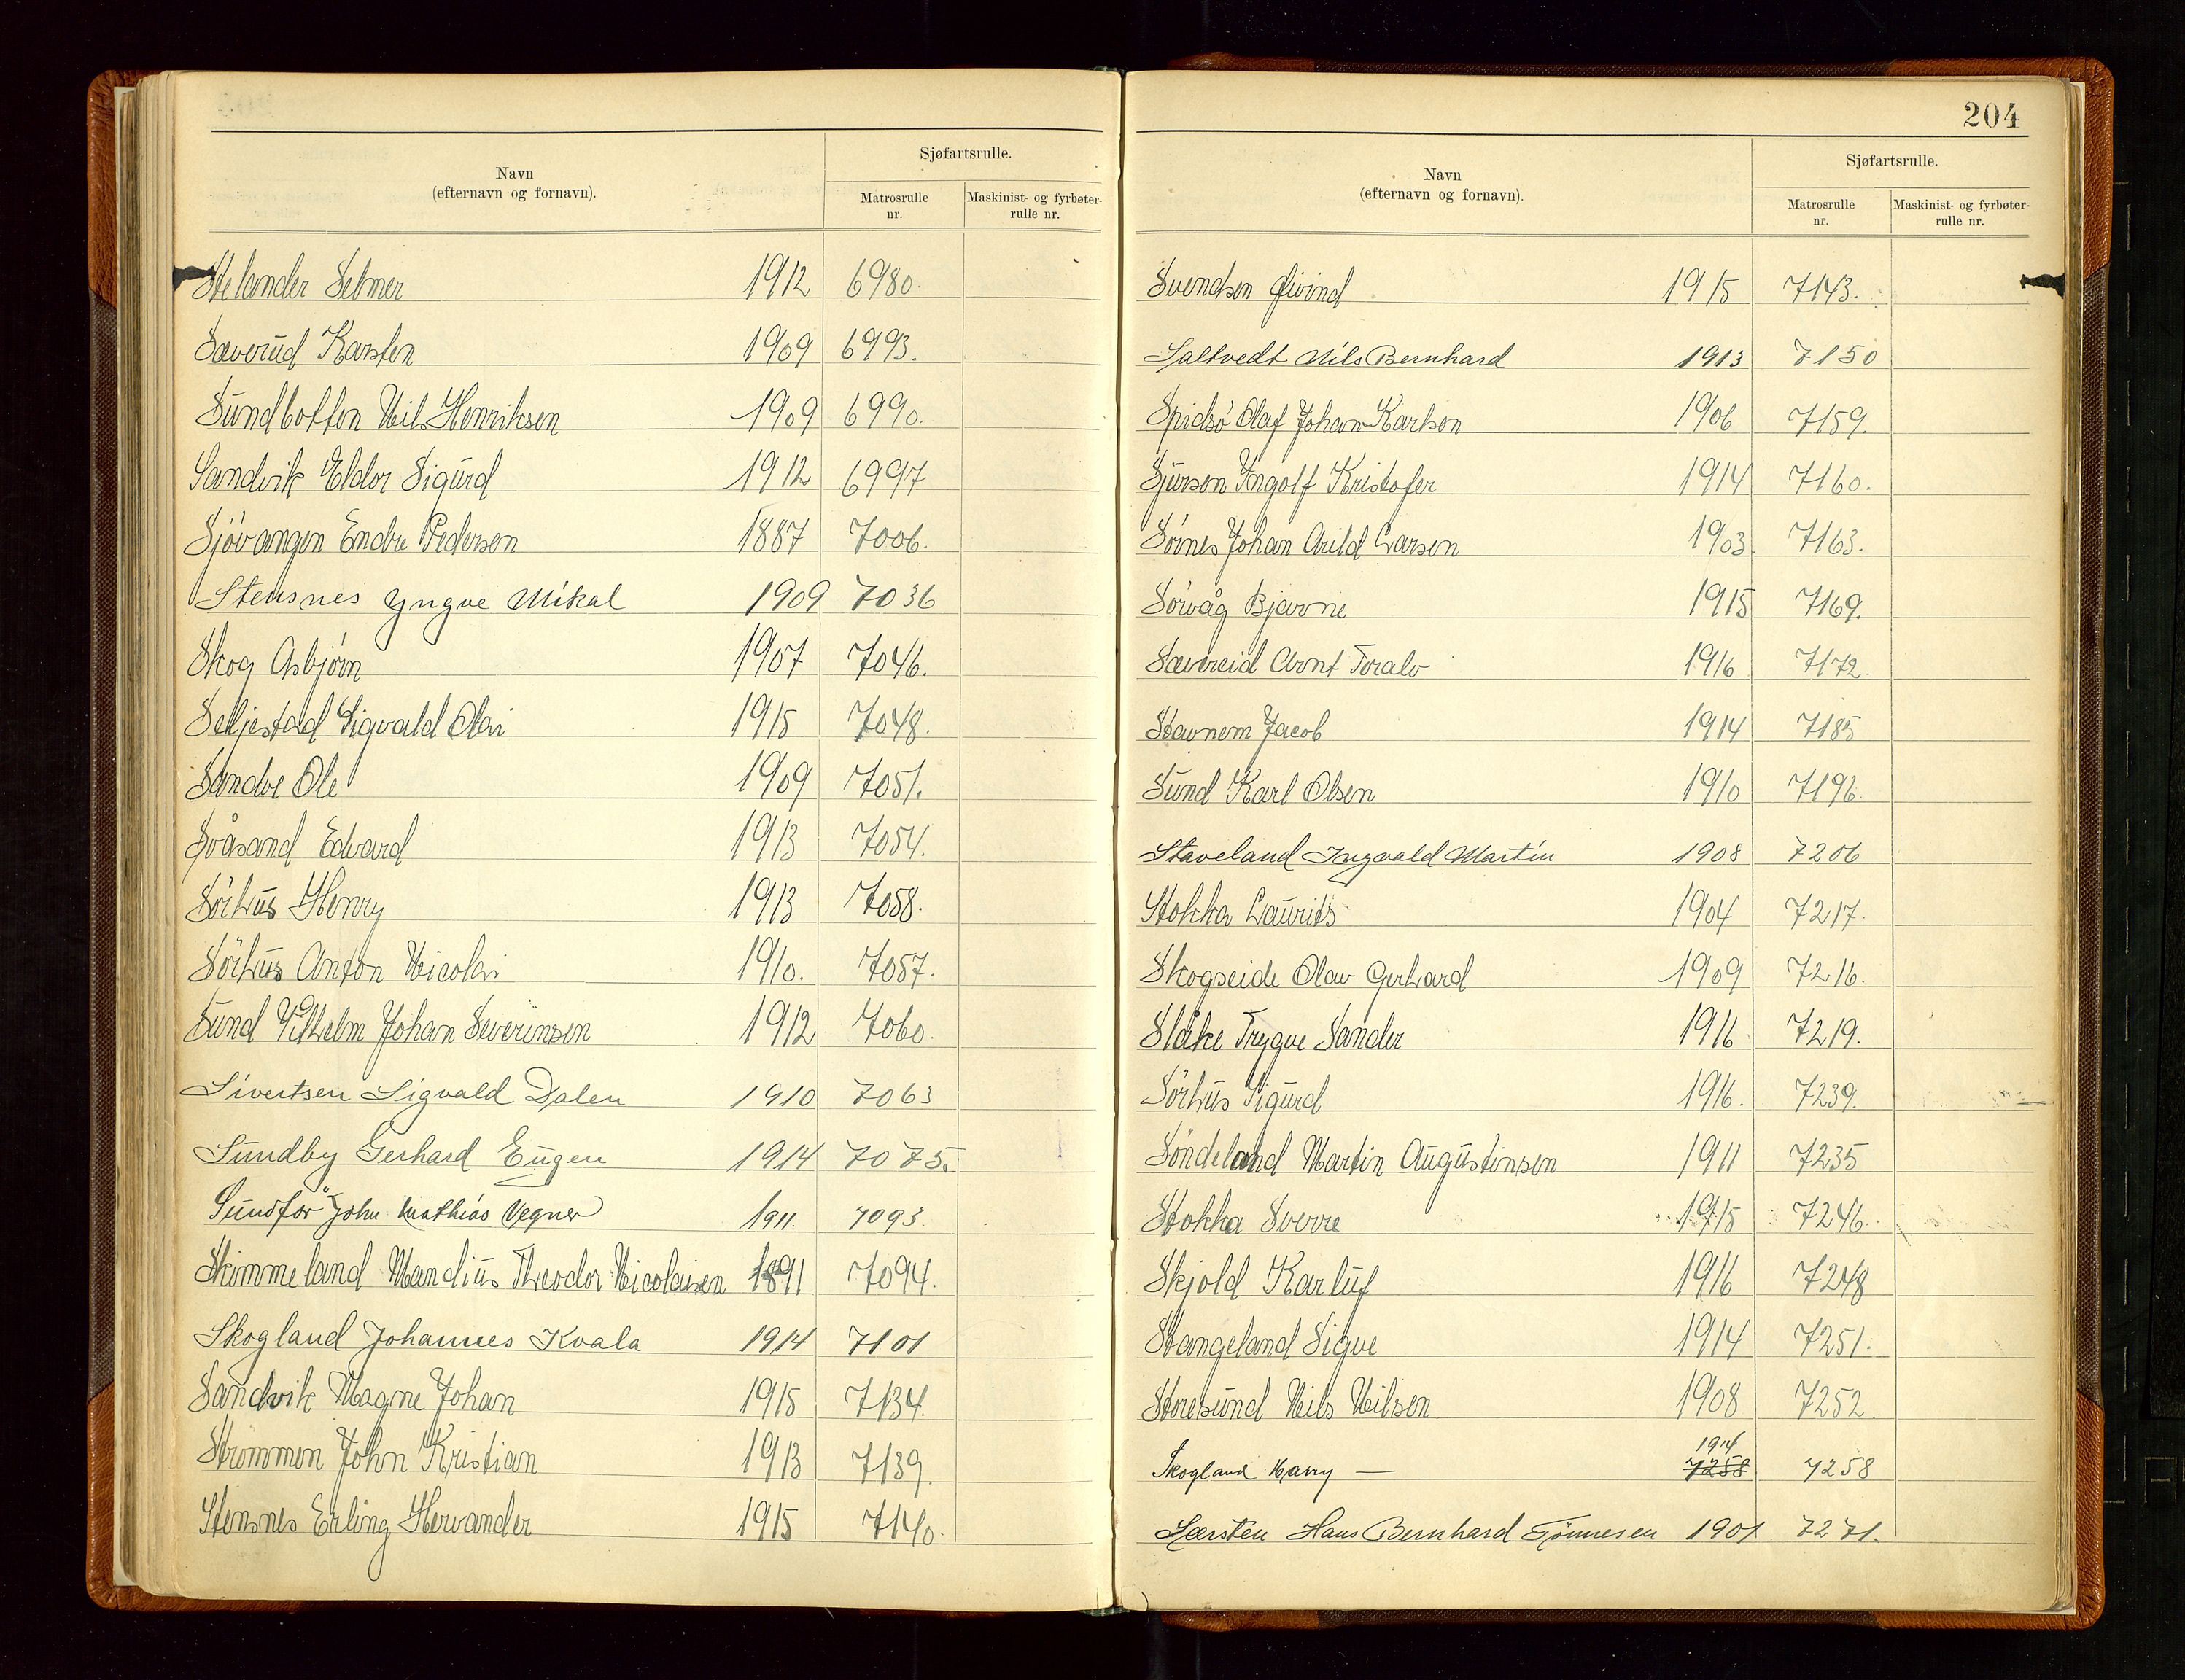 Navn
(efternavn og fornavn).
Sjøfartsrulle.
Matrosrulle nr.
Maskinist- og fyrbøter-rulle nr.
Stelander Selmer 1912 6980.
Sæverud Karsten 1909 6993.
Sundbotten Nils Henriksen 1909 6990.
Sandvik Eldor Sigurd 1912 6997
Sjövangen Endre Pedersen 1887 7006.
Stensnes Yngve Mikal 1909 7036
Skog Asbjörn 1907 7046.
Seljestad Sigvald Olai 1915 7048.
Sandve Ole 1909 7051.
Svåsand Edvard 1913 7054.
Sörhus Henry 1913 7058.
Sörhus Anton Nicolai 1910. 7057.
Sund Vilhelm Johan Severinsen 1912 7060.
Sivertsen Sigvald Dalen 1910 7063
Sundby Gerhard Eugen 1914 7075.
Sundför John Mathias Vegner 1911. 7093.
Skimmeland Mandius Theodor Nicolaisen 1891 7094.
Skogland Johannes Kvala 1914 7101
Sandvik Magne Johan 1915 7134.
Strømmen John Kristian 1913 7139.
Stensnes Erling Hervander 1915 7140.
204
Navn
(efternavn og fornavn).
Sjøfartsrulle.
Matrosrulle nr.
Maskinist- og fyrbøter-rulle nr.
Svendsen Øivind 1915 7143.
Saltvedt Nils Bernhard 1913 7150
Spidsö Olaf Johan Karlsen 1906 7159.
Sjursen Yngolf Kristofer 1914 7160.
Sörnes Johan Arild Larsen 1903. 7163.
Sörvåg Bjarne 1915 7169.
Sævereid Arnt Toralv 1916 7172.
Stavnem Jacob 1914 7185
Sund Karl Olsen 1910 7196.
Staveland Ingvald Martin 1908 7206
Stokka Laurits 1904 7217.
Skogseide Olav Gerhard 1909 7216.
Slåke Trygve Sander 1916 7219.
Sörhus Sigurd 1916. 7239.
Söndeland Martin Augustinsen 1911 7235
Stokka Sverre 1915 7246.
Skjold Karluf 1916 7248
Stangeland Sigve 1914 7251.
Storesund Nils Nilsen 1908 7252.
1914
Skogland Harry — 7258 7258
Særsten Hans Bernhard Tönnesen 1901. 7271.